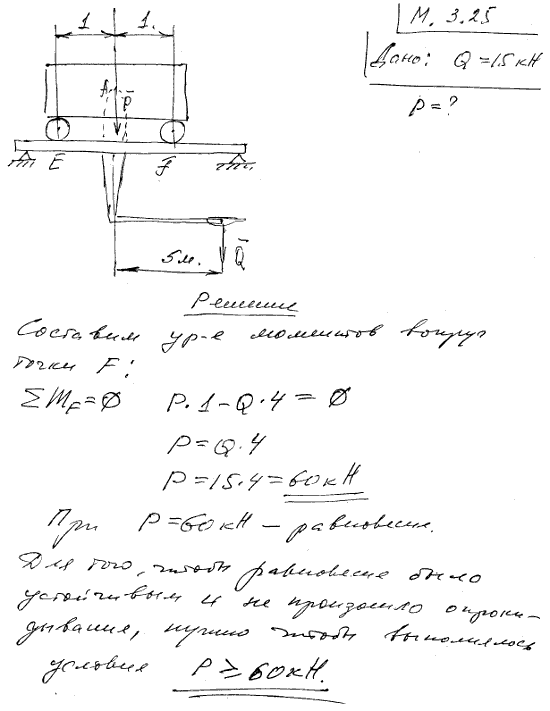 М. 3.25
1 1.
Дано: Q = 15 кН
P = ?
A P̄
E F
Q̄
5 м.
Решение
Составим ур-е моментов вокруг
точки F:
ΣM_F = 0 P · 1 - Q · 4 = 0
P = Q · 4
P = 15 · 4 = 60 кН
При P = 60 кН – равновесие.
Для того, чтобы равновесие было
устойчивым и не произошло опроки-
дывания, нужно чтобы выполнялось
условия P ≥ 60 кН.